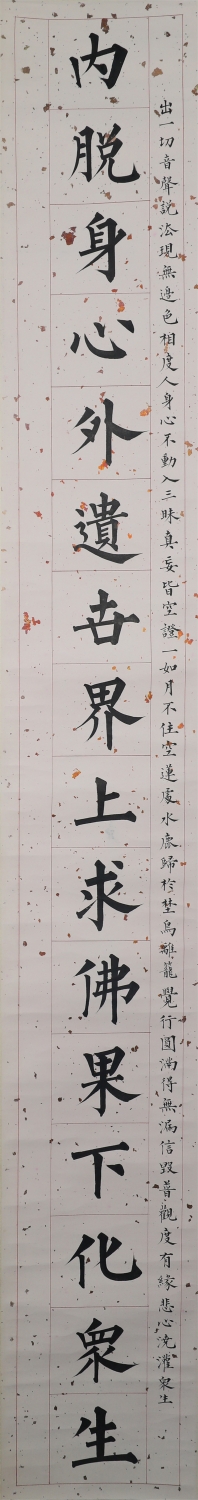 出一切音聲説法現無邊色相度人身心不動入三昧真妄皆空證一如月不住空蓮處水鹿歸於埜鳥離籠覺行圓滿得無漏信毀普觀度有緣悲心澆灌眾生
内脱身心外遺世界上求佛果下化眾生